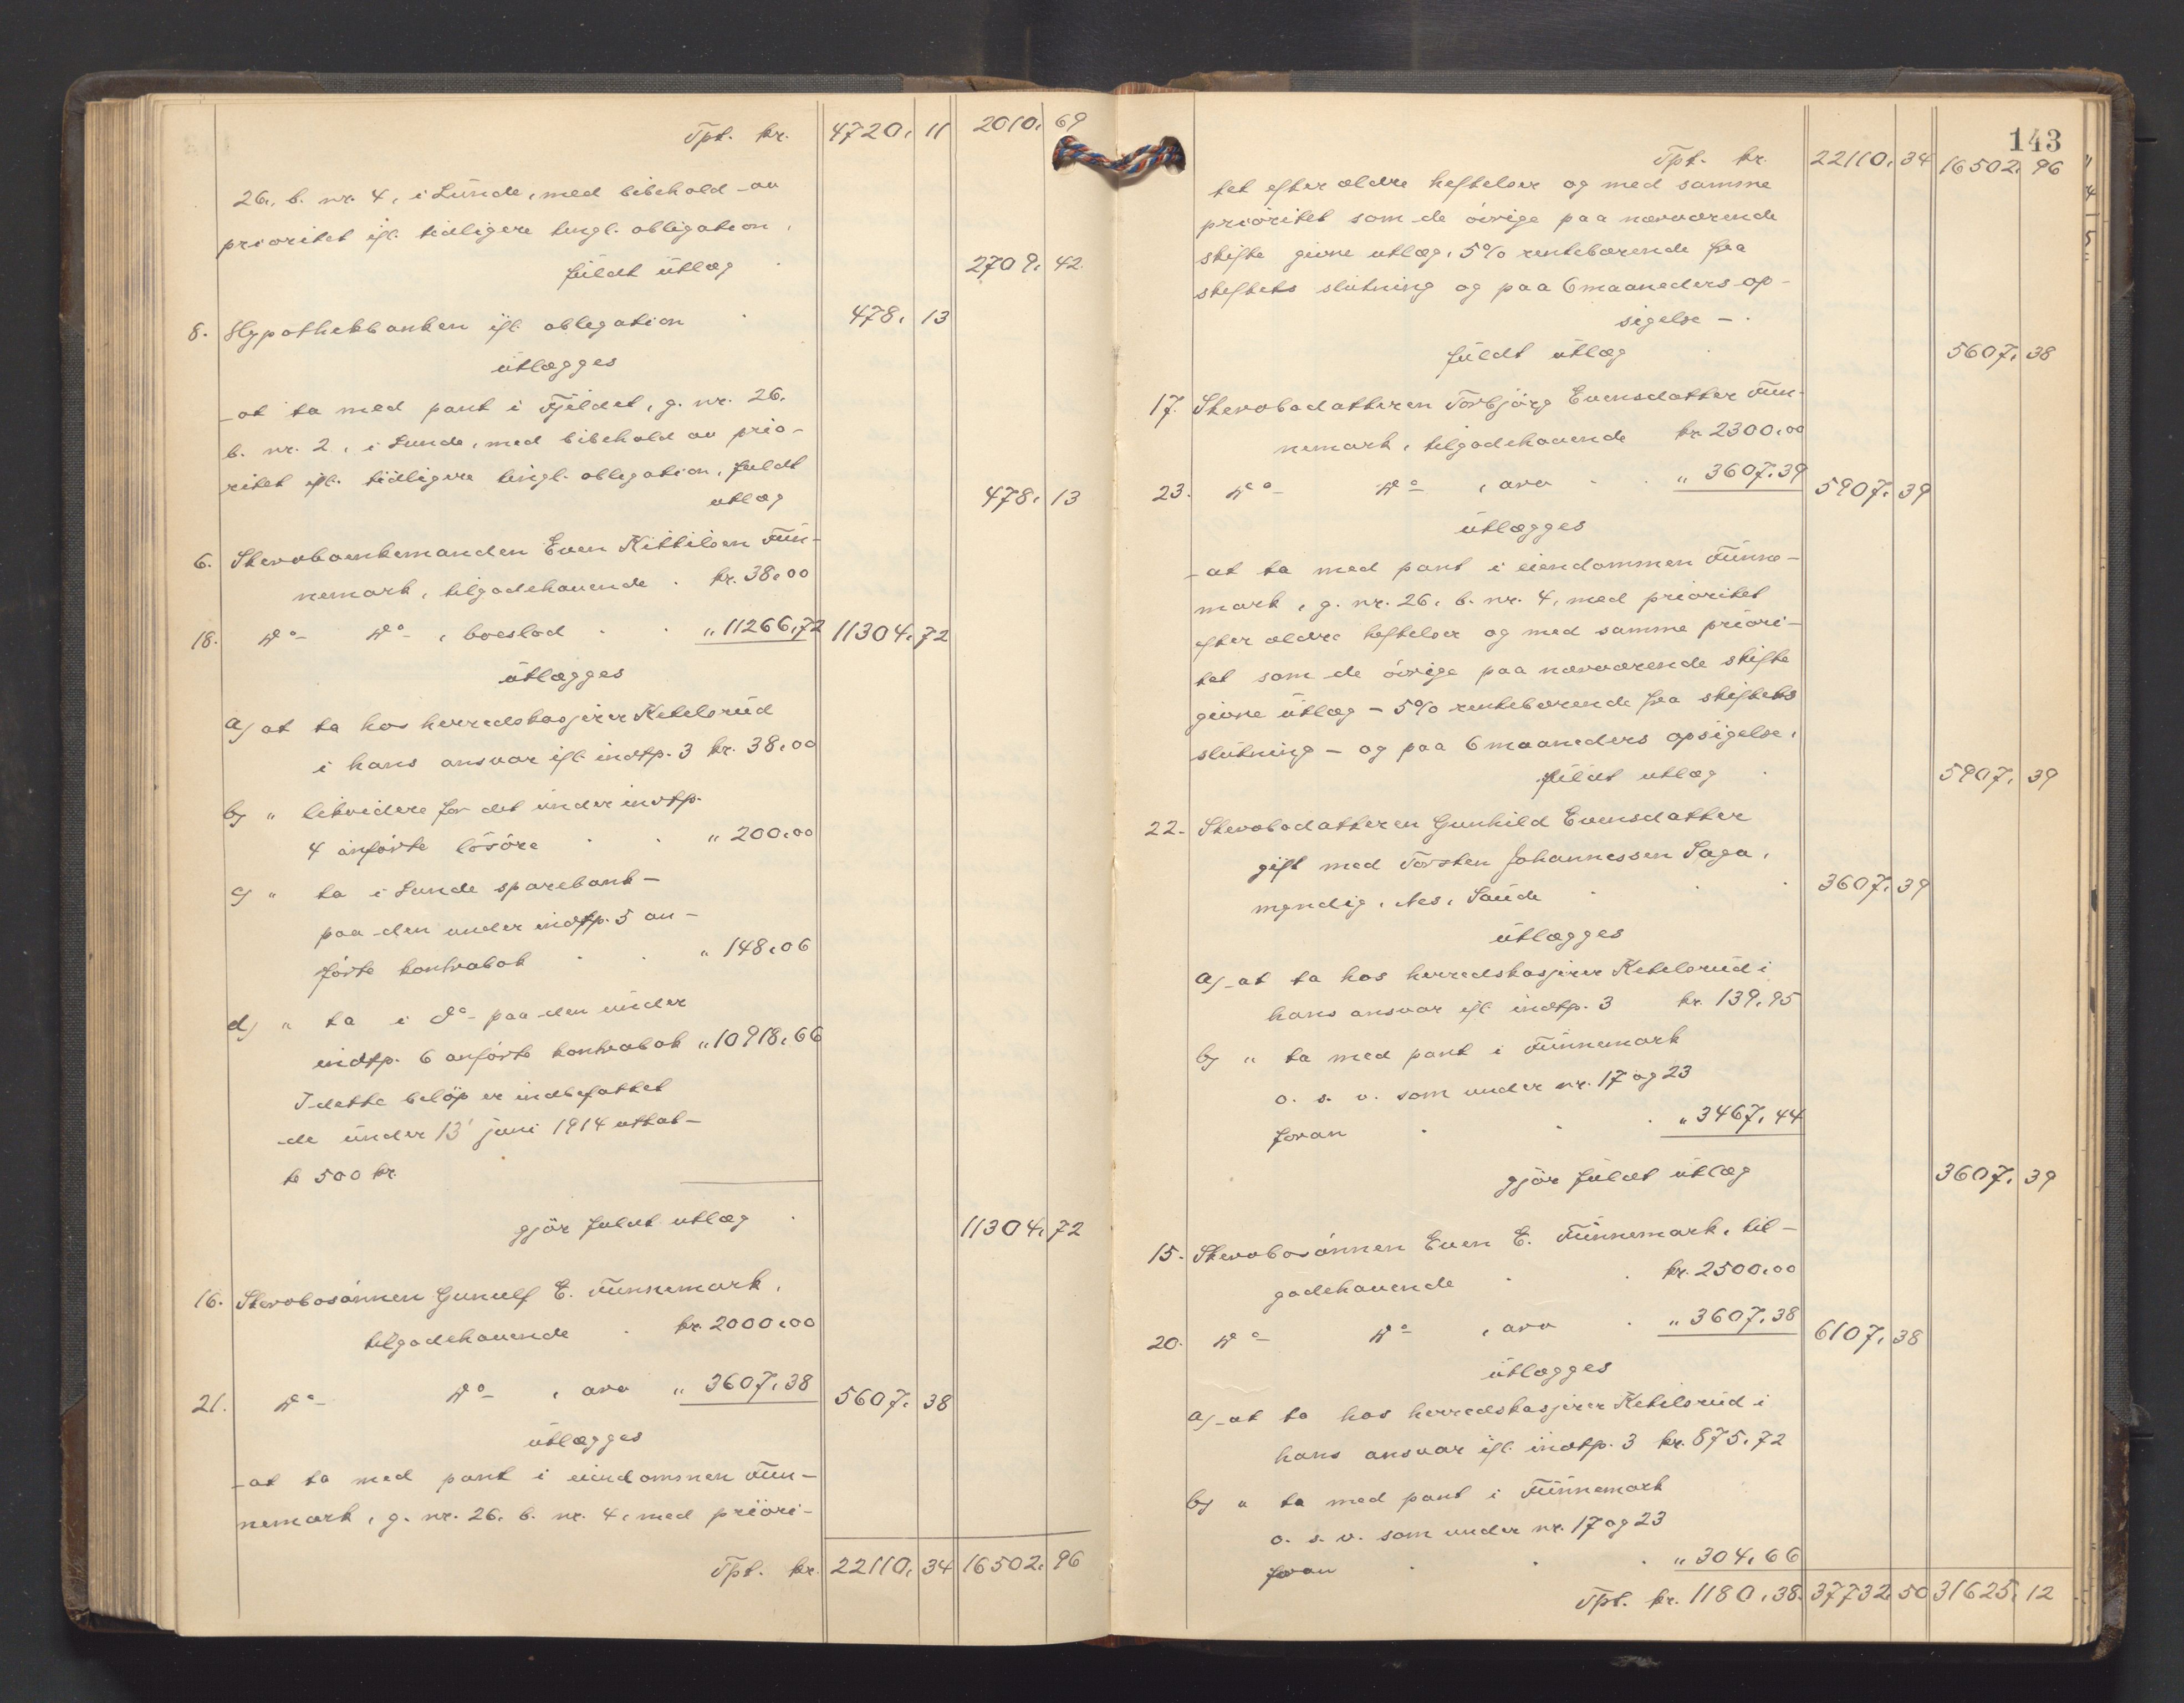 Tpt. kr. 4720, 11 2010, 69
26, b. nr. 4, i Lunde, med bibehold av
prioritet ifl. tidligere tingl. obligation,
fuldt utlæg 2709, 42
8. Hypothekbanken ifl. obligation 478, 13
utlægges
at ta med pant i Fjeldet, g. nr. 26,
b. nr. 2, i Lunde, med bibehold av prio-
ritet ifl. tidligere tingl. obligation, fuldt
utlæg 478, 13
6. Stervboenkemanden Even Kittilsen Tun-
nemark, tilgodehavende kr. 38,00
18. Do Do , boeslod „ 11266,72 11304, 72
utlægges
a) at ta hos herredskasjerer Ketilsrud
i hans ansvar ifl. indtp. 3 kr. 38,00
b) " likvidere for det under indtp.
4 anførte løsøre „ 200,00
c) " ta i Lunde sparebank
paa den under indtp. 5 an-
førte kontrabok „ 148,06
d) " ta i do paa den under
indtp. 6 anførte kontrabok „ 10918,66
I dette beløp er indbefattet
de under 13' juni 1914 uttat-
te 500 kr.
gjør fuldt utlæg 11304, 72
16. Stervbosønnen Gunulf E. Tunnemark,
tilgodehavende kr. 2000,00
21. Do Do , arv „ 3607,38 5607, 38
utlægges
at ta med pant i eiendommen Tun-
nemark, g. nr. 26, b. nr. 4, med priori-
Tpt. kr. 22110, 34 16502, 96
143
Tpt. kr. 22110, 34 16502, 96
tet efter ældre heftelser og med samme
prioritet som de øvrige paa nærværende
skifte givne utlæg, 5% rentebærende fra
skiftets slutning og paa 6 maaneders op-
sigelse -
fuldt utlæg 5607, 38
17. Stervbodatteren Torbjørg Evensdatter Tun-
nemark, tilgodehavende kr. 2300,00
23. Do Do , arv „ 3607,39 5907, 39
utlægges
at ta med pant i eiendommen Tunne-
mark, g. nr. 26, b. nr. 4, med prioritet
efter ældre heftelser og med samme priori-
tet som de øvrige paa nærværende skifte
givne utlæg - 5% rentebærende fra skiftets
slutning - og paa 6 maaneders opsigelse,
fuldt utlæg 5907, 39
22. Stervbodatteren Gunhild Evensdatter
gift med Torsten Johannessen Saga,
myndig, Nes, Saude 3607, 39
utlægges
a) at ta hos herredskasjerer Ketilsrud i
hans ansvar ifl. indtp. 3 kr. 139,95
b) " ta med pant i Tunnemark
o. s. v. som under nr. 17 og 23
foran „ 3467,44
gjør fuldt utlæg 3607, 39
15. Stervbosønnen Even E. Tunnemark, til-
godehavende kr. 2500,00
20. Do Do , arv „ 3607,38 6107, 38
utlægges
a) at ta hos herredskasjerer Ketilsrud i
hans ansvar ifl. indtp. 3 kr. 875,72
b) " ta med pant i Tunnemark
o. s. v. som under nr. 17 og 23
foran „ 304,66
Tpt. kr. 1180,38. 37732, 50 31625, 12